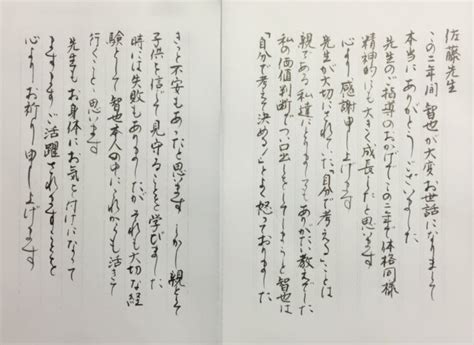 佐藤先生
この二年間 智也が大変お世話になりまして
本当にありがとうございました
先生のご指導のおかげでこの二年で体格同様
精神的にも大きく成長したと思います
心より感謝申し上げます
先生が大切にされてた「自分で考える」ことは
親である私達にとりましてもありがたい教えでした
私の価値判断でつい口出しをしてしまうと 智也は
「自分で考えて決める！」とよく怒っておりました
きっと不安もあったと思います しかし親として
子供を信じて見守ることを学びました
時には失敗もありましたが それも大切な経
験として 智也本人の中にこれからも活きて
行くことと 思います
先生もお身体にお気を付けになって
ますますご活躍されますことを
心よりお祈り申し上げます